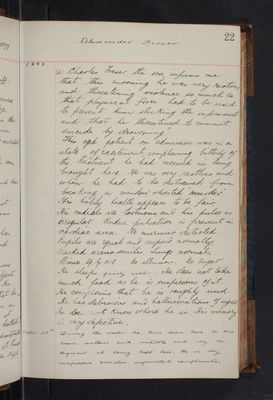 22
Alexander Fraser
1899
a Charles Fraser the son, informs me
that this morning he was very restless
and threatening violence so much so
that physical force had to be used
to prevent him attacking the informant
and that he threatened to commit
suicide by drowning.
This aged patient on admission was in a
state of excitement complaining bitterly of
the treatment he had received in being
brought here. He was very restless and
when he had to be restrained from
breaking a window shouted murder.
His bodily health appears to be fair.
His radials are tortuous and his pulse is
irregular. Cardiac pulsation is present in
cardiac area. No murmurs detected.
Pupils are equal and respond normally.
Marked arcus senilis. Lungs normal.
Urine No albumen. No sugar
He sleeps He does not take
much food as he is suspicious of it.
He complains that he is roughly used.
He has delusions and hallucinations of sight.
He does not know where he is. His memory
is very defective.
Sept. During the week he has been
been restless and and very in-
dignant at being kept here. He is very
suspicious